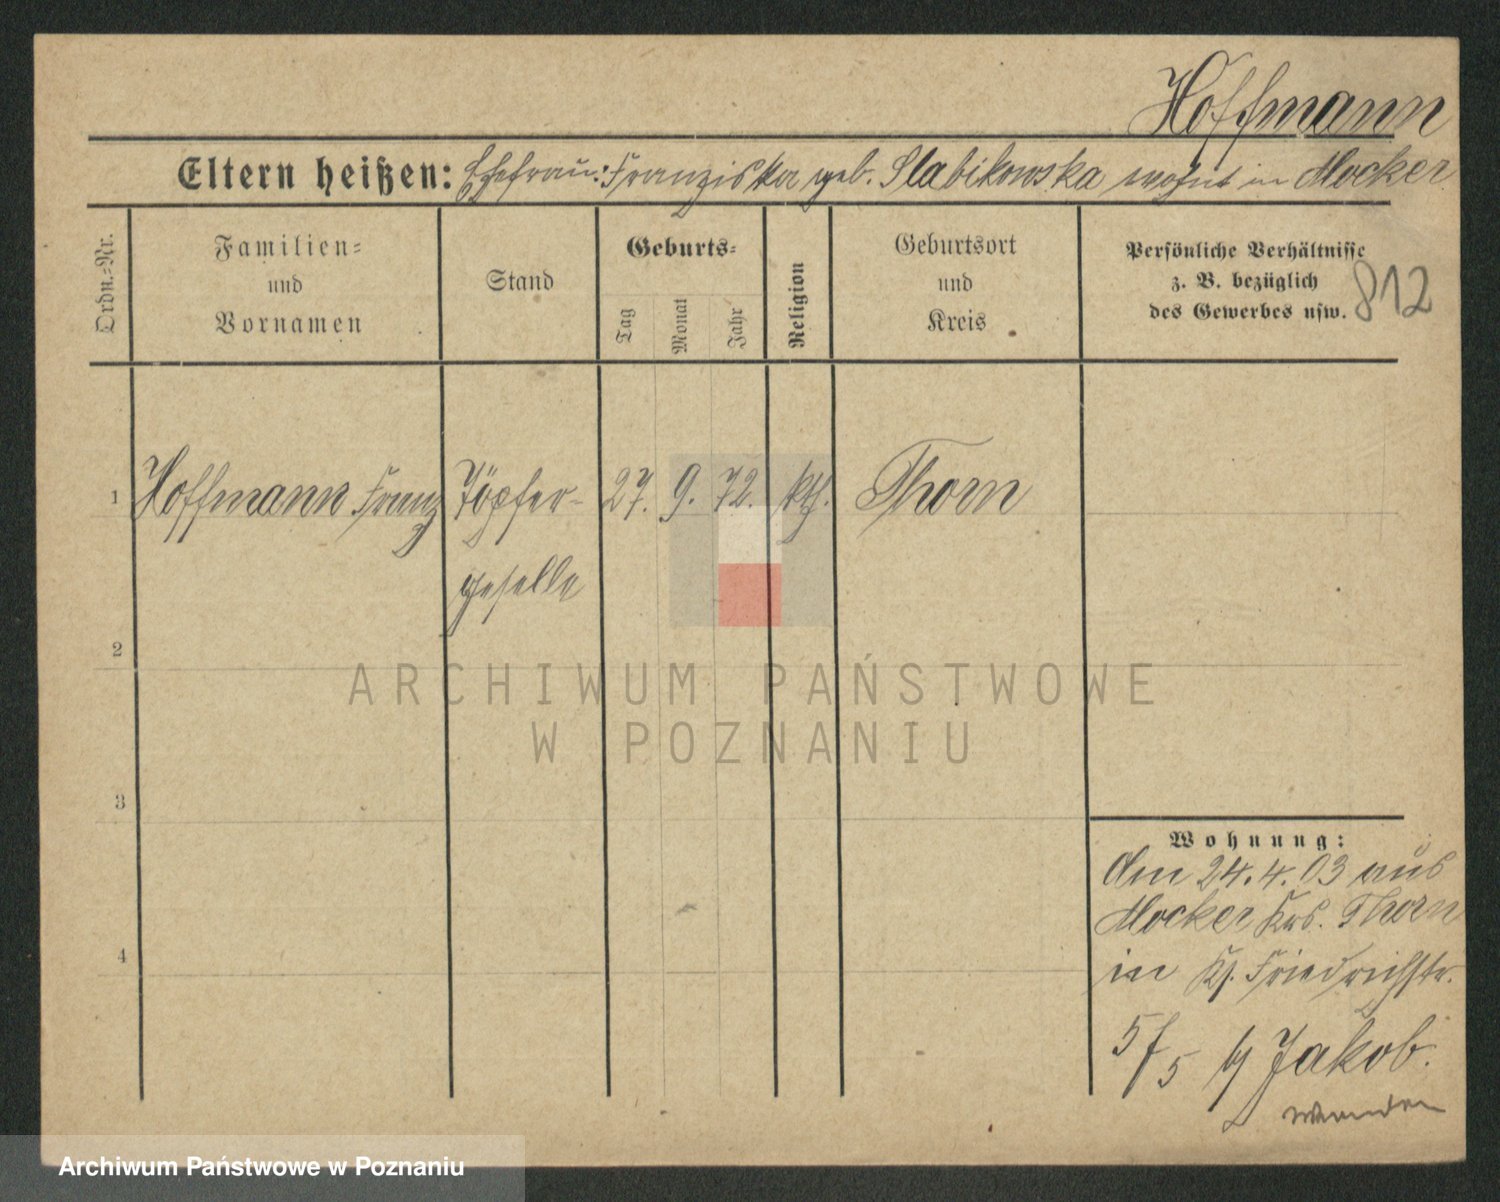 Hoffmann
Eltern heißen: Ehefrau: Franziska geb. Slabikowska wohnt in Mocker
Ordn.=Nr.
Familien=
und
Vornamen
Stand
Geburts=
Tag
Monat
Jahr
Religion
Geburtsort
und
Kreis
Persönliche Verhältnisse
z. B. bezüglich
des Gewerbes usw.
812
1 Hoffmann Franz Töpfer- 27. 9. 72. kth. Thorn
geselle
2
3
4
Wohnung:
Am 24.4.03 aus
Mocker Krs. Thorn
in Kl. Friedrichstr.
5 b/ Jakob.
wenden
ARCHIWUM PAŃSTWOWE
W POZNANIU
Archiwum Państwowe w Poznaniu